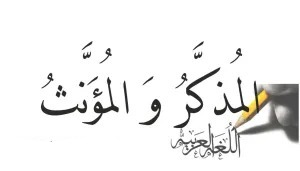 المُذكَّرُ وَ المُؤَنَّثُ
اللُّغة العربية